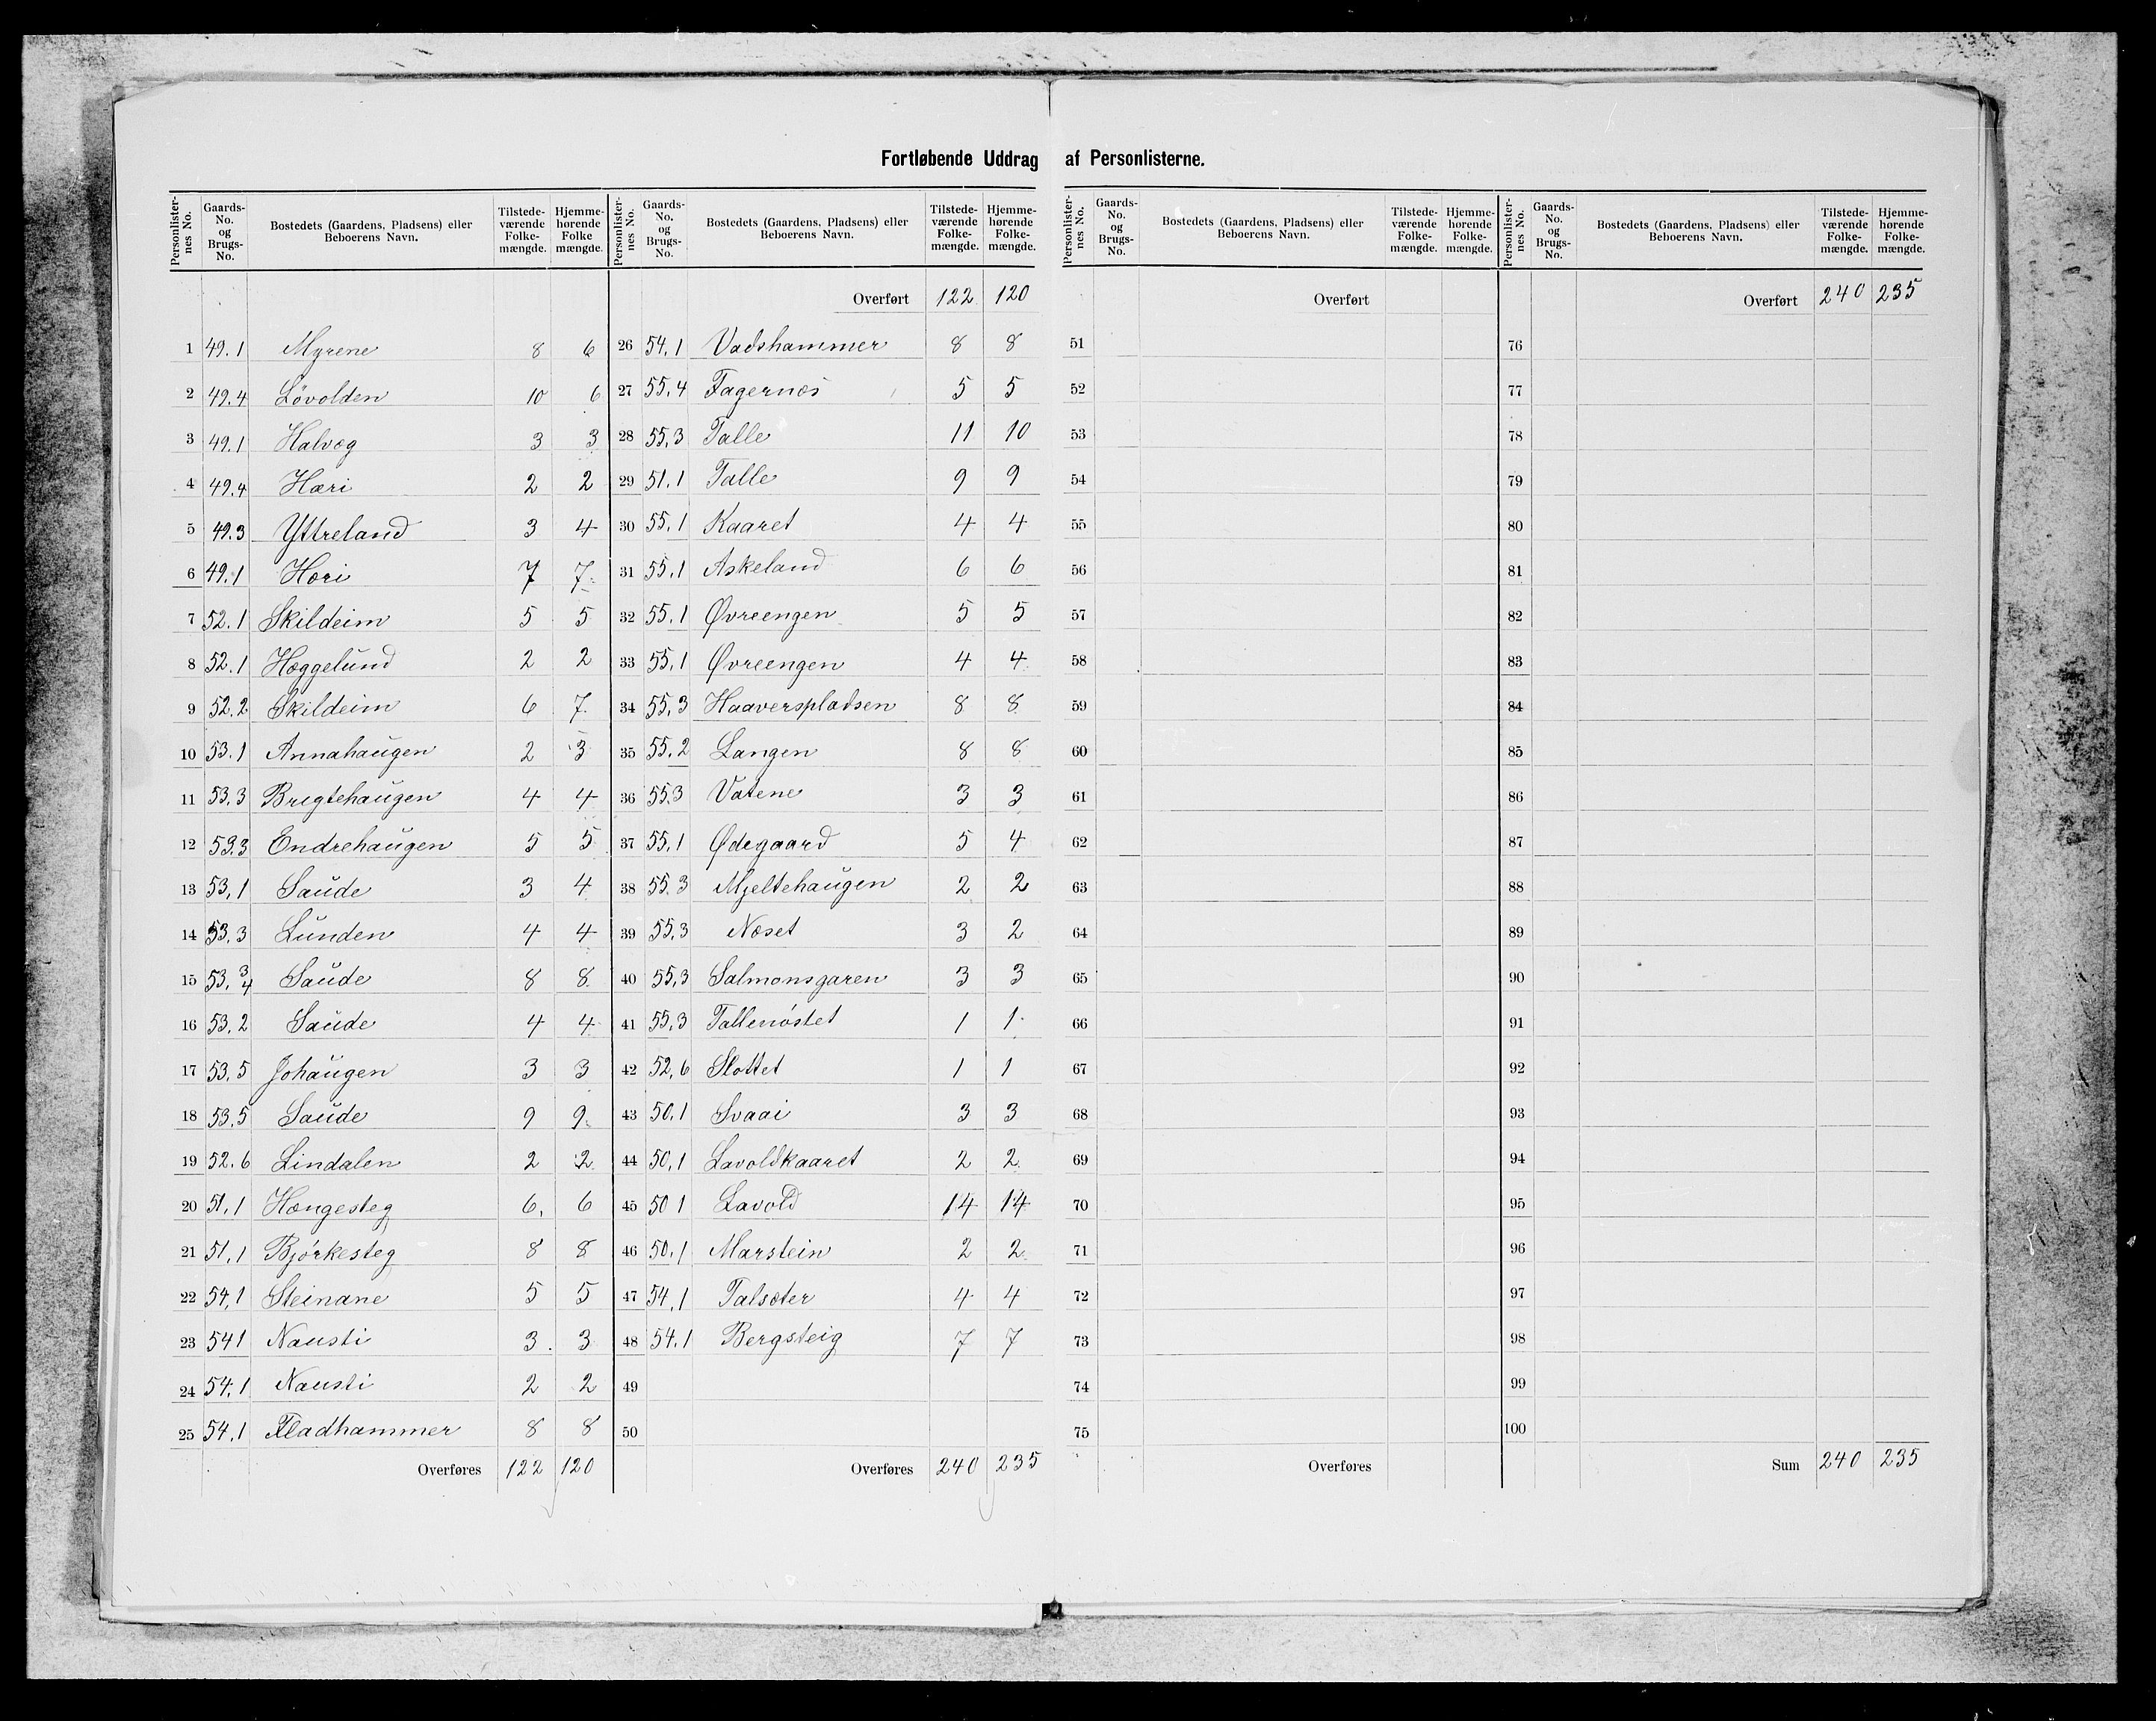 Fortløbende Uddrag af Personlisterne.
Personlisternes No. | Gaards-No. og Brugs-No. | Bostedets (Gaardens, Pladsens) eller Beboerens Navn. | Tilstedeværende Folkemængde. | Hjemmehørende Folkemængde.
1 49.1 Myrene 8 6
2 49.4 Løvolden 10 6
3 49.1 Halvæg 3 3
4 49.4 Hæri 2 2
5 49.3 Yttreland 3 4
6 49.1 Hæri 7 7
7 52.1 Skildeim 5 5
8 52.1 Hæggelund 2 2
9 52.2 Skildeim 6 7
10 53.1 Annahaugen 2 3
11 53.3 Bregtehaugen 4 4
12 53.3 Endrehaugen 5 5
13 53,1 Saude 3 4
14 53.3 Lunden 4 4
15 53. 3/4 Saude 8 8
16 53.2 Saude 4 4
17 53.5 Johaugen 3 3
18 53.5 Saude 9 9
19 52.6 Lindalen 2 2
20 51,1 Hængesteg 6 6
21 51,1 Bjørkesteg 8 8
22 54,1 Steinane 5 5
23 54 1 Nausti 3 3
24 54.1 Nausti 2 2
25 54.1 Fladhammer 8 8
Overføres 122 120
Personlisternes No. | Gaards-No. og Brugs-No. | Bostedets (Gaardens, Pladsens) eller Beboerens Navn. | Tilstedeværende Folkemængde. | Hjemmehørende Folkemængde.
Overført 122 120
26 54.1 Vadshammer 8 8
27 55.4 Fagernæs 5 5
28 55.3 Talle 11 10
29 51.1 Talle 9 9
30 55.1 Kaaret 4 4
31 55.1 Askeland 6 6
32 55.1 Øvreengen 5 5
33 55.1 Øvreengen 4 4
34 55,3 Haaverspladsen 8 8
35 55.2 Langen 8 8
36 55.3 Vatene 3 3
37 55.1 Ødegaard 5 4
38 55.3 Mjeltehaugen 2 2
39 55,3 Næset 3 2
40 55,3 Salmonsgaren 3 3
41 55,3 Tallenøstet 1 1
42 52,6 Slottet 1 1
43 50,1 Svaai 3 3
44 50,1 Lavoldkaaret 2 2
45 50 1 Lavold 14 14
46 50,1 Marstein 2 2
47 54,1 Talsæter 4 4
48 54.1 Bergsteig 7 7
49
50
Overføres 240 235
Personlisternes No. | Gaards-No. og Brugs-No. | Bostedets (Gaardens, Pladsens) eller Beboerens Navn. | Tilstedeværende Folkemængde. | Hjemmehørende Folkemængde.
Overført
51
52
53
54
55
56
57
58
59
60
61
62
63
64
65
66
67
68
69
70
71
72
73
74
75
Overføres
Personlisternes No. | Gaards-No. og Brugs-No. | Bostedets (Gaardens, Pladsens) eller Beboerens Navn. | Tilstedeværende Folkemængde. | Hjemmehørende Folkemængde.
Overført 240 235
76
77
78
79
80
81
82
83
84
85
86
87
88
89
90
91
92
93
94
95
96
97
98
99
100
Sum 240 235